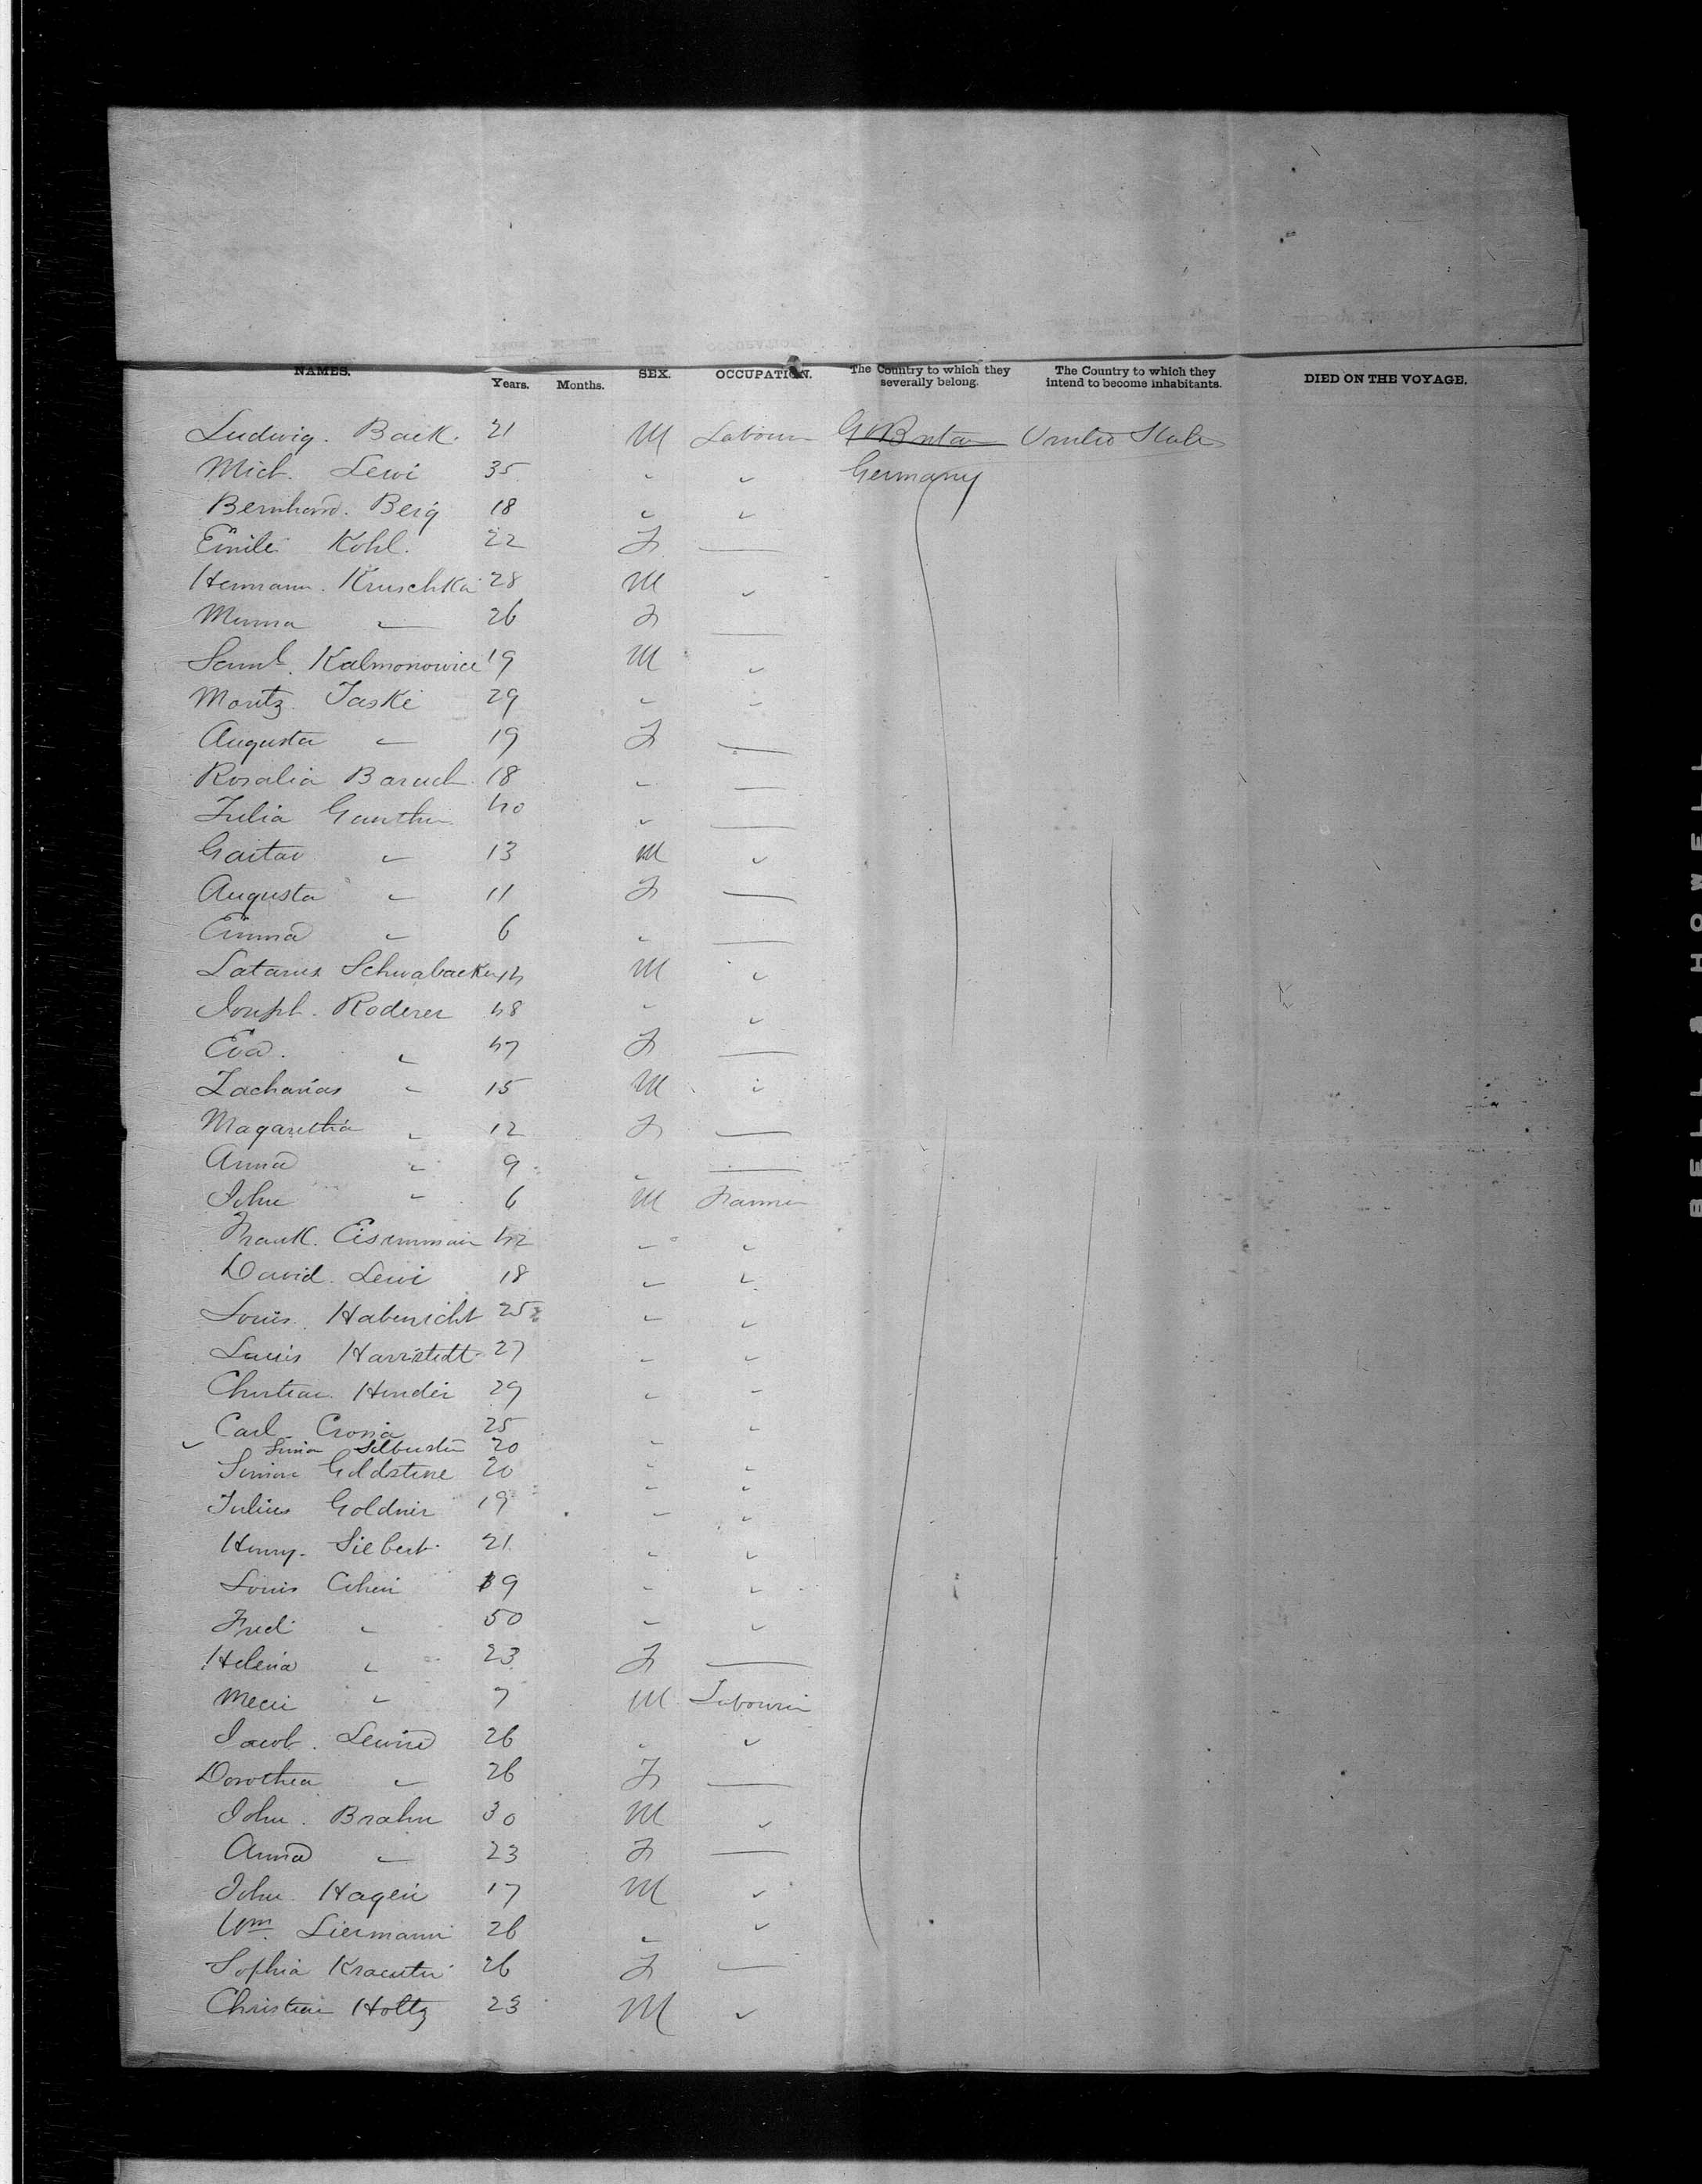 NAMES. Years. Months. SEX. OCCUPATION. The Country to which they severally belong. The Country to which they intend to become inhabitants. DIED ON THE VOYAGE.
Ludwig. Back. 21 M Labourer Gt Britain United States
Mich. Lewi 35 " " Germany
Bernhard. Berg 18 " "
Emile Kohl. 22 F —
Hermann. Kruschka 28 M "
Minna " 26 F —
Saml. Kalmonowice 19 M "
Moritz Jaske 29 " "
Augusta " 19 F —
Rosalia Baruch 18 " —
Julia Gunther 40 " —
Gastav " 13 M "
Augusta " 11 F —
Emma " 6 " —
Schwabacker 14 M "
Joseph. Roderer 48 " "
Eva. " 47 F —
Zacharias " 15 M "
Magaretha " 12 F —
Anna " 9 " —
John " 6 M Farmer
Frank. Eisenmann 42 " "
David. Lewi 18 " "
Louis. Habenicht 25 " "
Louis Harrstedt 27 " "
Christian. 29 " "
Carl 25 "
20 "
Simon Goldstine 20 " "
Julius Goldner 19 " "
Henry. Siebert 21 " "
Louis Cohen 39 " "
Fred " 50 " "
Helena " 23 F —
" 7 M Labourer
Jacob. Lewin 26 " "
Dorothea " 26 F —
John. Brahn 30 M "
Anna " 23 F —
John Hagen 17 M "
Wm. Liermann 26 " "
Sophia 26 F —
Christian Holtz 23 M "
BELL & HOWELL